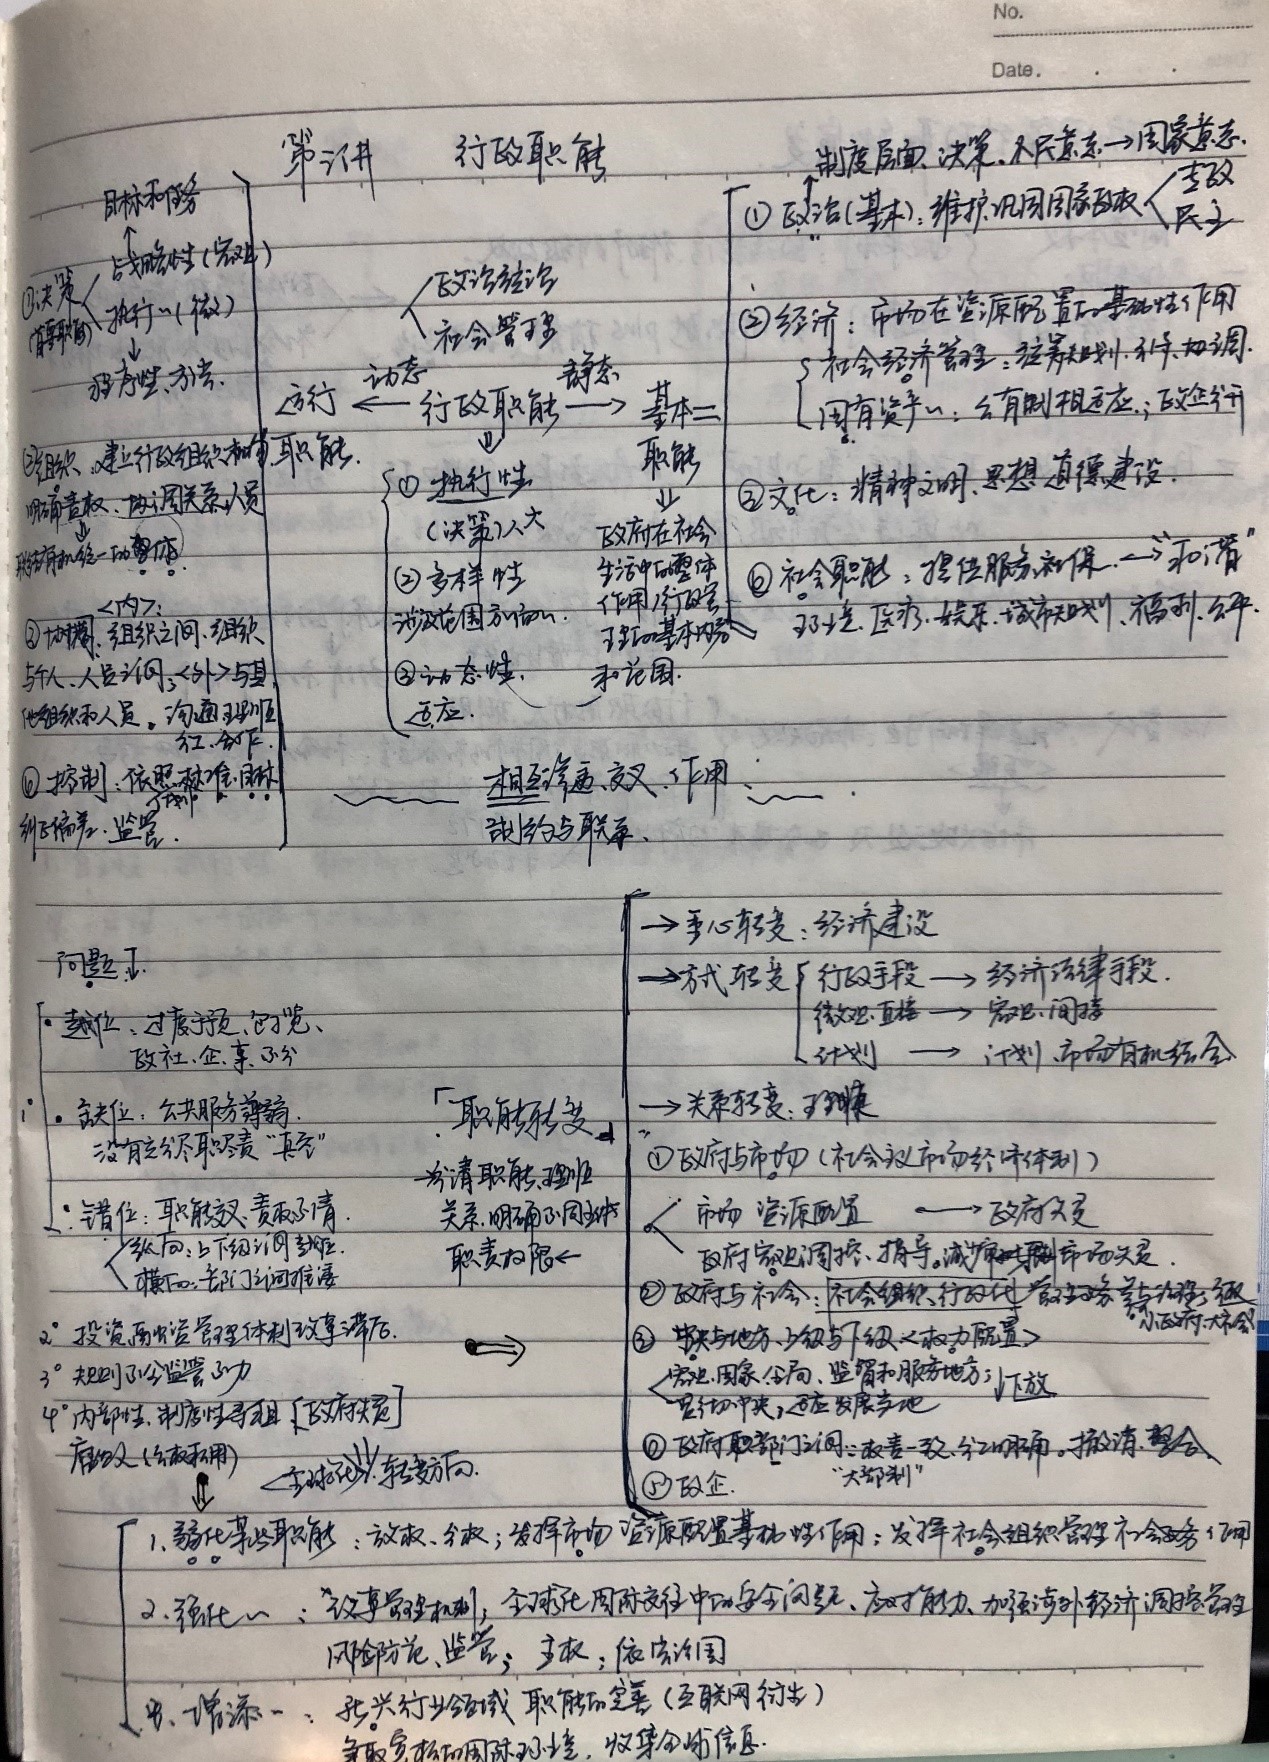 No.
Date.
第 讲 行政职能
制度层面、决策、人民意志→国家意志.
①政治(基本):维护巩固国家政权
专政
民主
②经济:市场在资源配置的基础性作用
社会经济管理:统筹规划.引导.协调.
国有资产~:公有制相适应;政企分开
③文化:精神文明.思想道德建设.
④社会职能:提供服务.社保.→"和谐"
环境.医疗.娱乐.城市规划.福利.公平.
目标和任务
↑
战略性(宏观)
①决策
(首要职能)
执行~(微)
↓
程序性、方法.
②组织:建立行政组织机构
明确责权、协调关系人员
联结有机统一的整体.
<内>:
③协调:组织之间.组织
与个人、人员之间;<外>与其
他组织和人员。沟通理顺
分工、合作.
④控制:依照标准.目标
计划
纠正偏差、监管.
政治统治
社会管理
运行 ←动态 行政职能 静态→ 基本=
职能.
职能
①执行性
(决策)人大
②多样性
涉及范围方位~.
③动态性.
适应.
政府在社会
生活中的整体
作用/行政管
理的基本内容
和范围.
相互渗透、交叉、作用
制约与联系.
问题↓.
1°
·越位:过度干预、包揽、
政社、企、事不分
·缺位:公共服务薄弱.
没有充分尽职尽责"真空"
·错位:职能交叉、责权不清.
纵向:上下级之间越位.
横向:部门之间推诿
2° 投资 管理体制改革滞后.
3° 规则不公监管不力
4° 内部性、制度性寻租[政府失灵]
腐败(公权私用)
<全球化>转变方向.
「职能转变」
分清职能、理顺
关系.明确不同主体
职责权限←
→重心转变:经济建设
→方式转变
行政手段→经济法律手段.
微观.直接→宏观.间接
计划→计划、市场有机结合
→关系转变:理顺
①政府与市场(社会主义市场经济体制)
市场 资源配置 →政府失灵
政府宏观调控、指导。减 市场失灵.
②政府与社会:社会组织行政化
小政府.大社会
③中央与地方、上级与下级<权力配置>
宏观.国家全局、监督和服务地方;↓下放
贯彻中央,适应发展当地
④政府职部门之间:权责一致、分工明确。撤消.整合.
"大部制"
⑤政企.
1.弱化某些职能:放权、分权;发挥市场资源配置基础性作用;发挥社会组织管理社会事务作用
2.强化~: 管理机制;全球化国际交往中的安全问题、应对能力、加强涉外经济调控管理
风险防范、监管;主权;依法治国
3.增添~:新兴行业领域职能的完善(互联网衍生)
争取宽松的国际环境.收集全球信息.